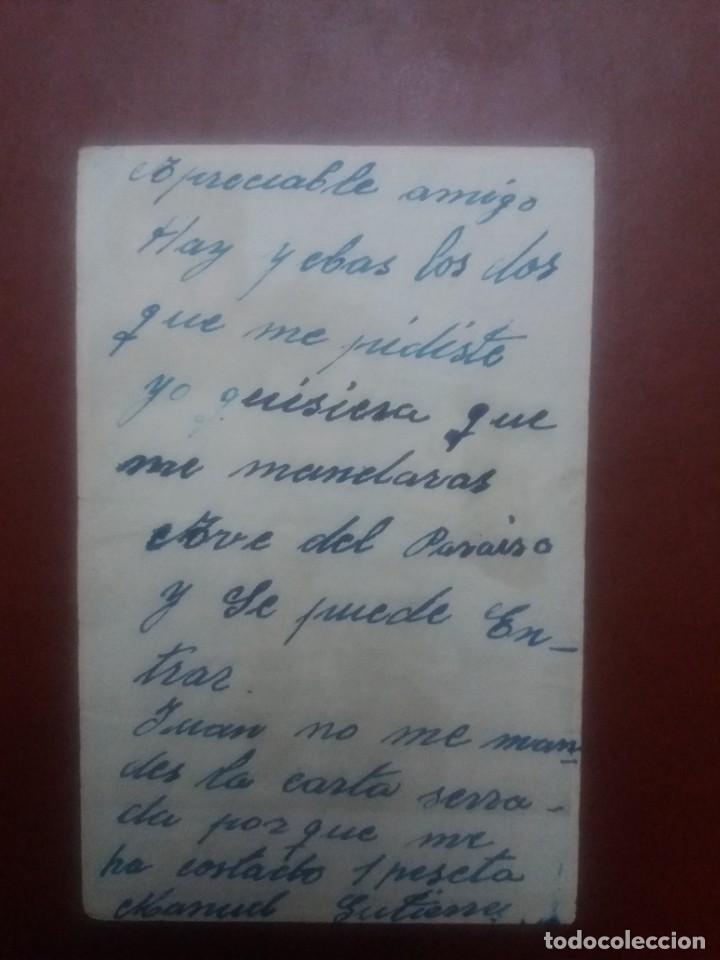 Apreciable amigo
Hay y ebas los dos
que me pidiste
yo quisiera que
me mandaras
Ave del Paraiso
y Se puede En-
trar.
Juan no me man-
des la carta serra-
da porque me
ha costado 1 peseta
Manuel Gutierrez
todocoleccion